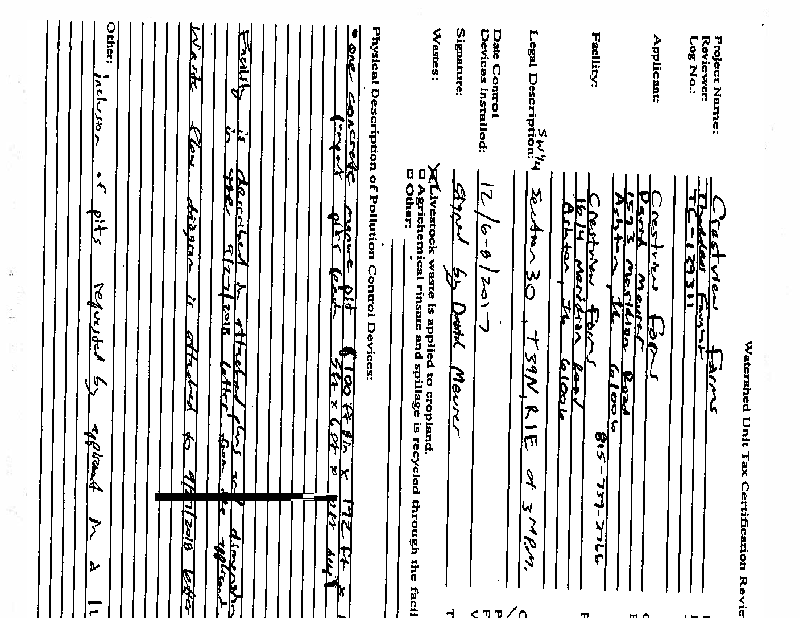 Watershed Unit Tax Certification Revie
Project Name: Crestview Farms
Reviewer: Thaddeus
Log No.: TC-129311
Applicant: Crestview Farms
David Meurer
1573 Meridian Road
Ashton, IL 61006
815-757-7766
Facility: Crestview Farms
1614 Meridian Road
Ashton, IL 61006
Legal Description: SW 1/4 Section 30, T39N, R1E of 3 M.P.M.
Date Control
Devices Installed: 12/6-8/2017
Signature: Signed by David Meurer
Wastes: Livestock waste is applied to cropland.
Agrichemical rinsate and spillage is recycled through the facil
Other:
Physical Description of Pollution Control Devices:
• one concrete manure pit 100 ft x 192 ft x
pits
Facility is described in attached plans and dimensions
in 9/27/2018 letter from the applicant
Waste flow diagram is attached to 9/27/2018 letter
Other: Inclusion of pits requested by applicant in a